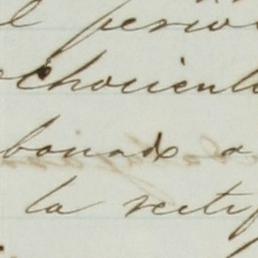 l perio
chocient
bonado a
la rectif